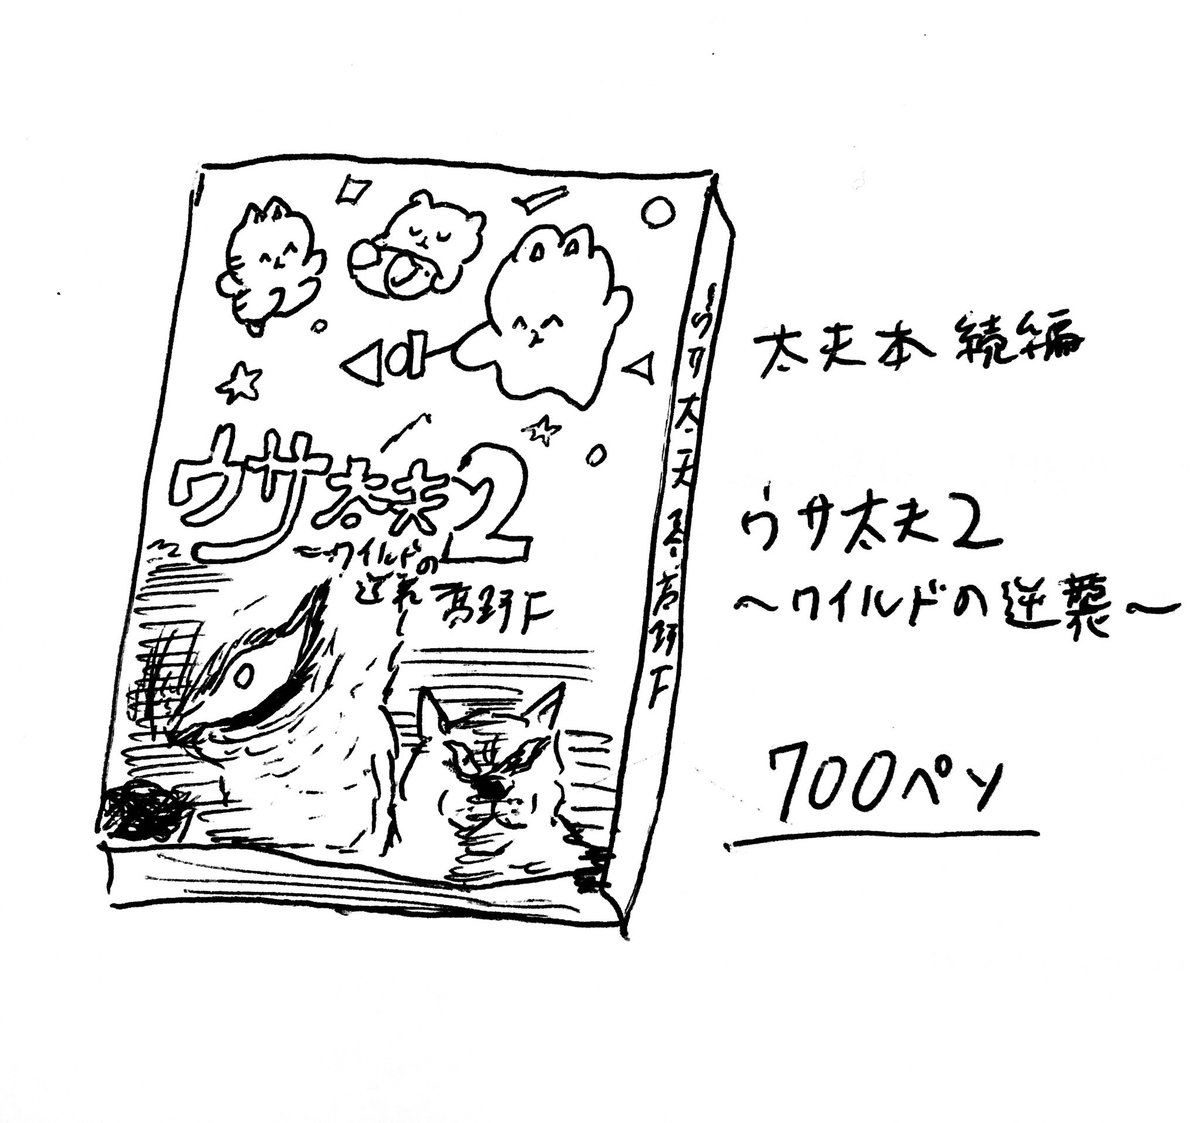 ウサ太夫2
~ワイルドの
逆襲
高野F
ウサ太夫 2 高野F
太夫本 続編
ウサ太夫2
~ワイルドの逆襲~
700ペソ